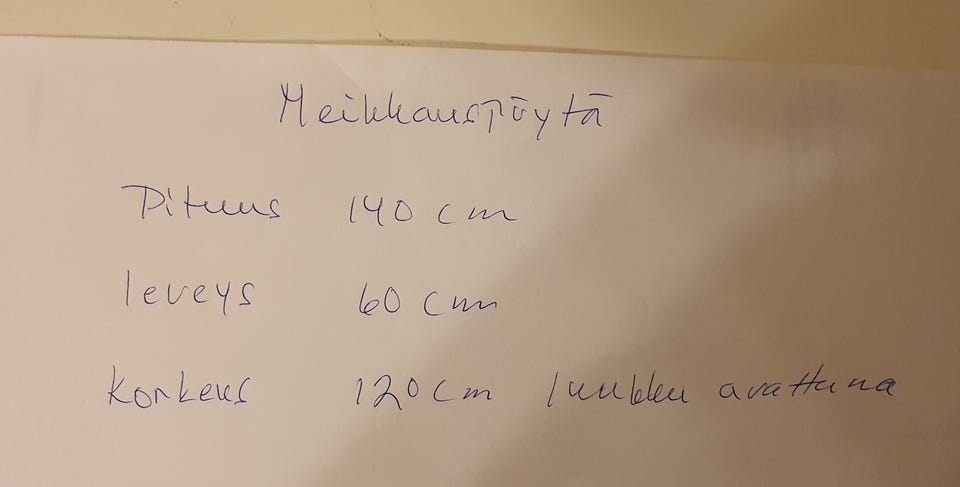 Meikkauspöytä
Pituus 140 cm
leveys 60 cm
korkeus 120 cm luukku avattuna